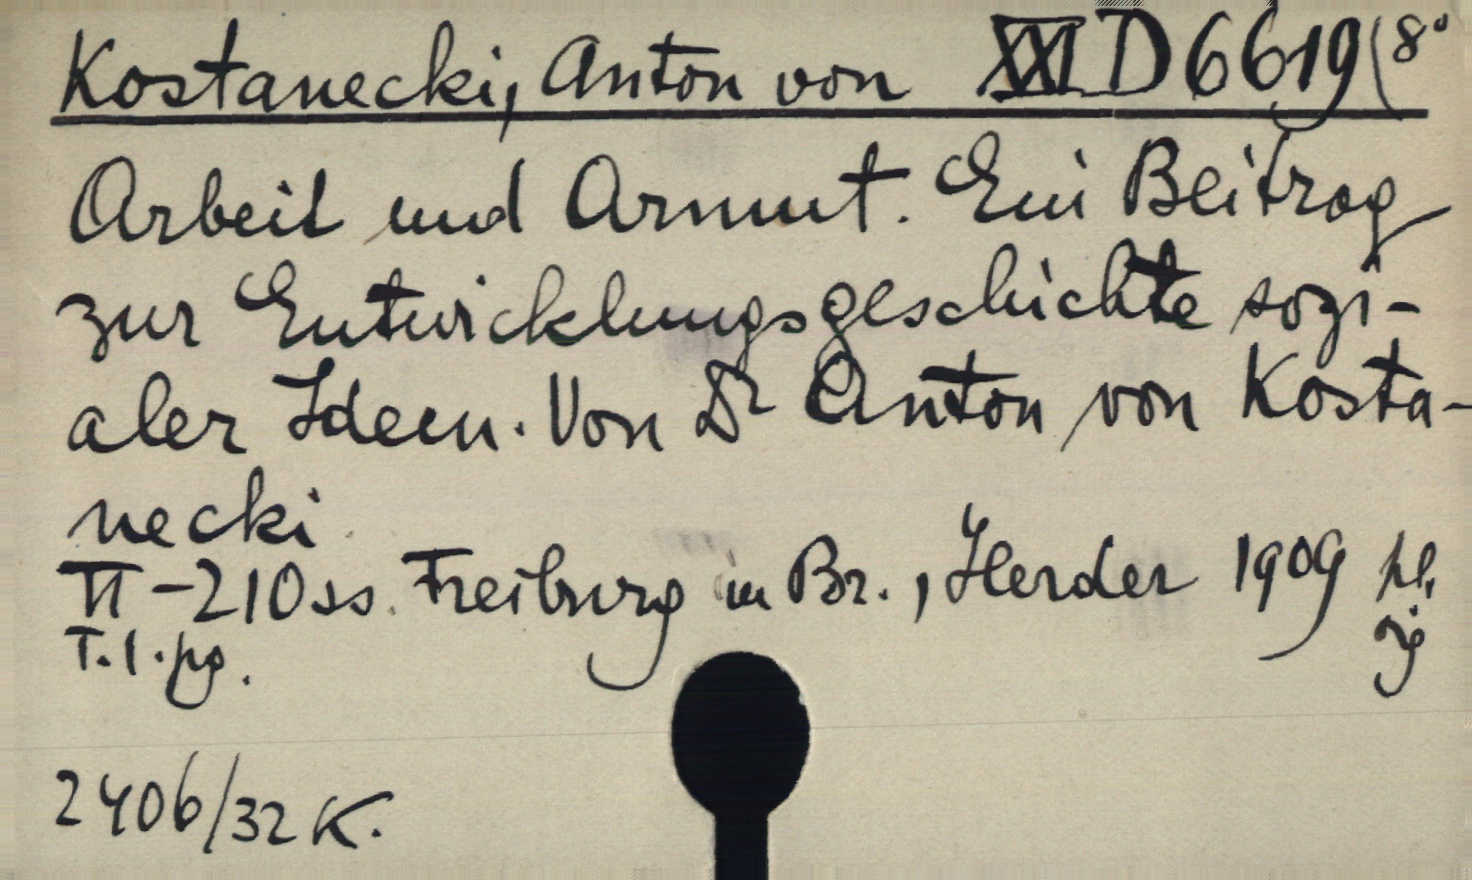 Kostanecki, Anton von XXI D 6619 (8°
Arbeit und Armut. Ein Beitrag
zur Entwicklungsgeschichte sozi-
aler Ideen. Von Dr Anton von Kosta-
necki
VI-210 ss. Freiburg im Br., Herder 1909 pł.
T. 1. pg.
2406/32 K.